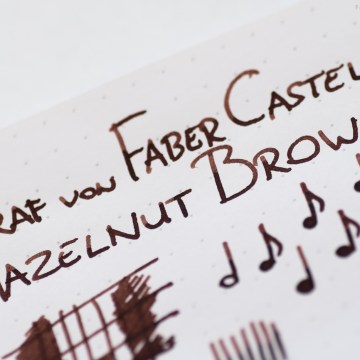 RAF VON FABER CASTEL
AZELNUT BROW